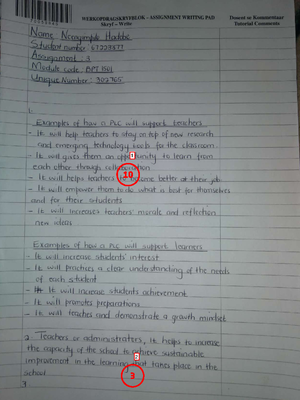 WERKOPDRAGSKRYFBLOK - ASSIGNMENT WRITING PAD
Skryf - Write
Dosent se Kommentaar
Tutorial Comments
Name:
Student number:
Assignment: 3
Module code: BPT 1501
Unique Number:
1.
Examples of how a PLC will support teachers
- It will help teachers to stay on top of new research
and emerging technology tools for the classroom
- It will give them an opportunity to learn from
each other through collaboration
- It will helps teachers to become better at their job
- It will empower them to do what is best for themselves
and for their students
- It will increases teachers' morale and reflection
new ideas
10
Examples of how a PLC will support learners
- It will increase students' interest
- It will practice a clear understanding of the needs
of each student
- It will increase students achievement
- It will promotes preparations
- It will teaches and demonstrate a growth mindset
2. Teachers or administrators, It helps to increase
the capacity of the school to achieve sustainable
improvement in the learning that takes place in the
school
3